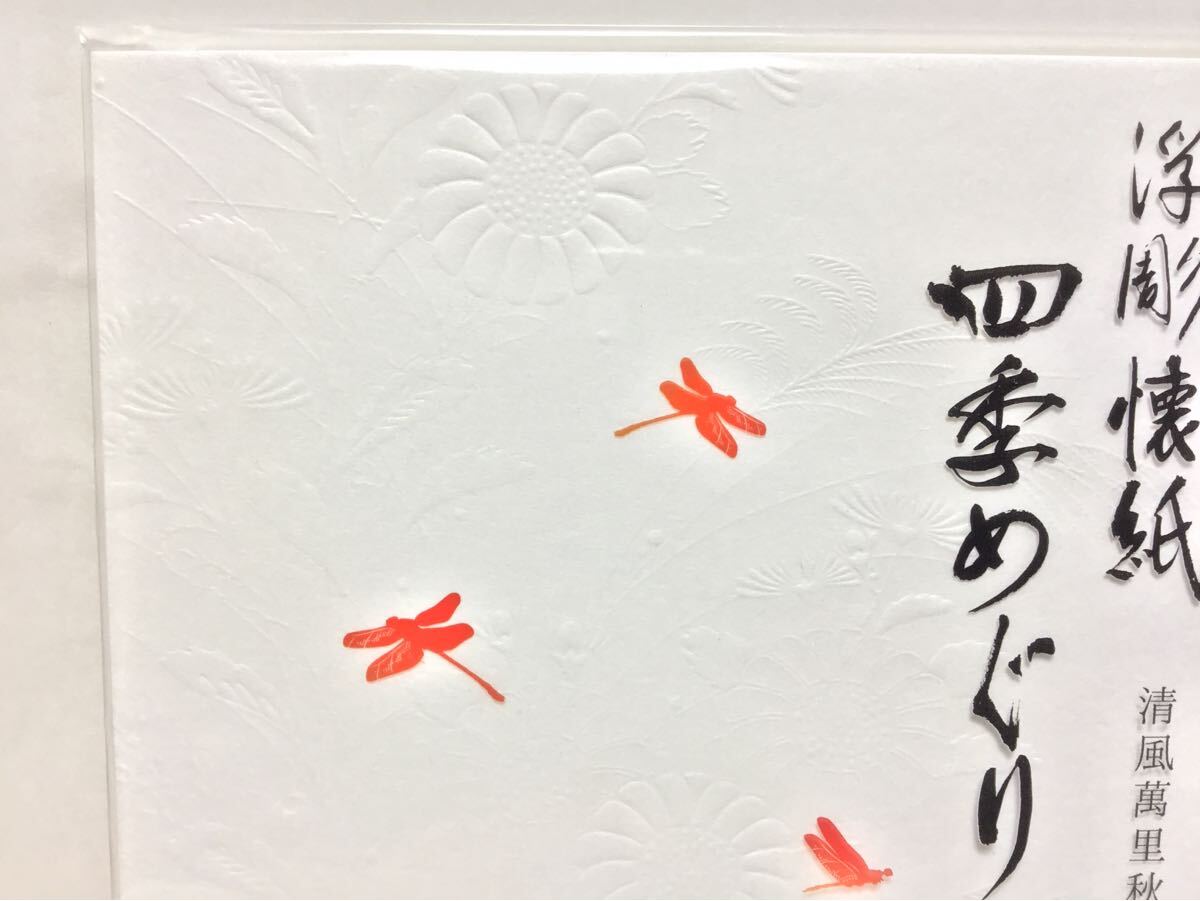 浮彫懐紙
四季めぐり
清風萬里秋